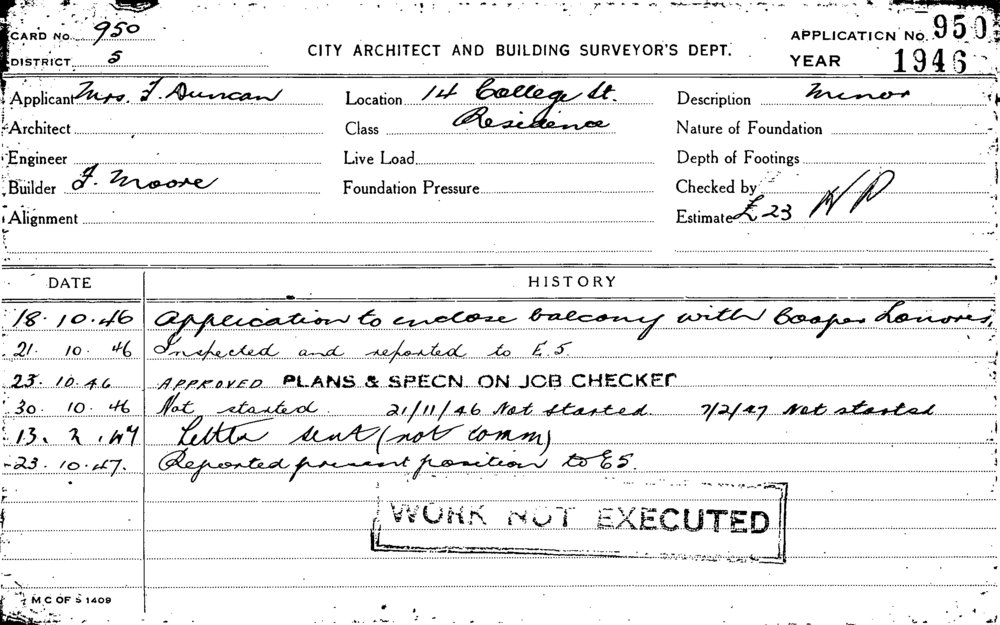 CARD No. 950
DISTRICT 5
CITY ARCHITECT AND BUILDING SURVEYOR'S DEPT.
APPLICATION No. 950
YEAR 1946
Applicant Mrs. F. Duncan
Location 14 College St.
Description Minor
Architect
Class Residence
Nature of Foundation
Engineer
Live Load
Depth of Footings
Builder F. Moore
Foundation Pressure
Checked by
Alignment
Estimate £23 
DATE HISTORY
18.10.46 Application to enclose balcony with Cooper Louvres.
21. 10. 46 Inspected and reported to E.S.
23.10.46 APPROVED PLANS & SPECN. ON JOB CHECKED
30. 10. 46 Not started. 21/11/46 Not started. 7/2/47 Not started
13. 2. 47 Letter sent (not comm)
23.10.47. Reported present position to ES.
WORK NOT EXECUTED
M C OF S 1409